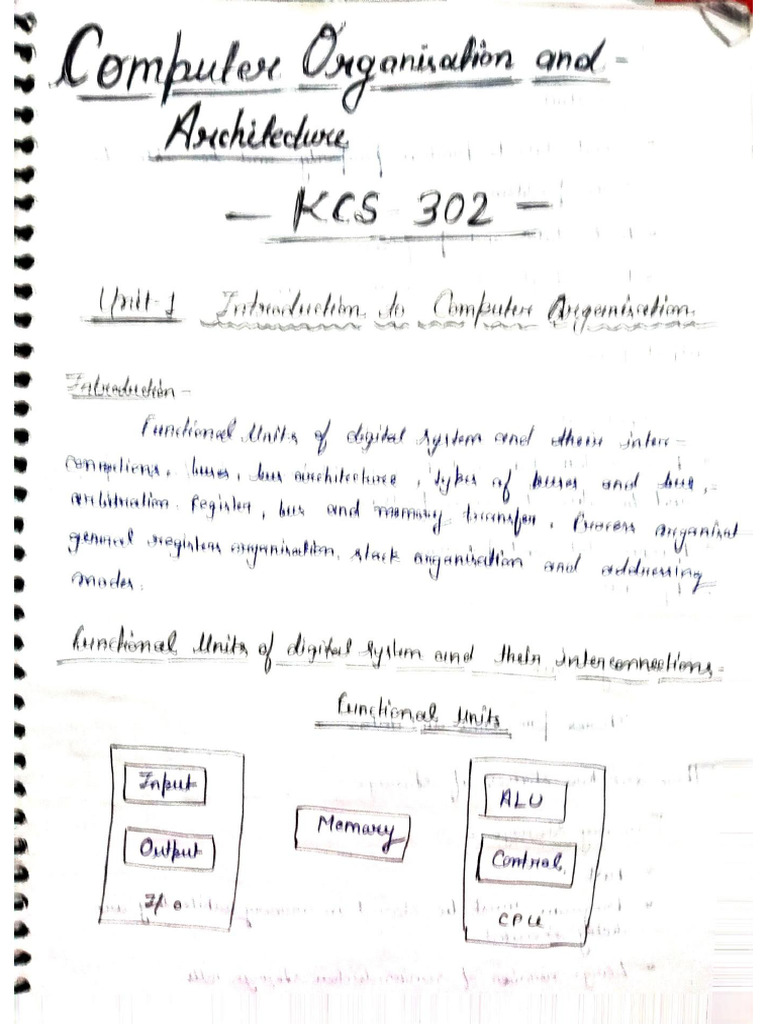 Computer Organisation and -
Architecture
- KCS 302 -
Unit-1 Introduction to Computer Organisation
Introduction -
Functional Units of digital system and their inter-
connections, buses, bus architecture, types of buses and bus,-
arbitration. Register, bus and memory transfer. Process organisat
general registers organisation, stack organisation and addressing
modes.
Functional Units of digital system and their interconnections-
Functional Units
Input
Output
I/O
Memory
ALU
Control
CPU